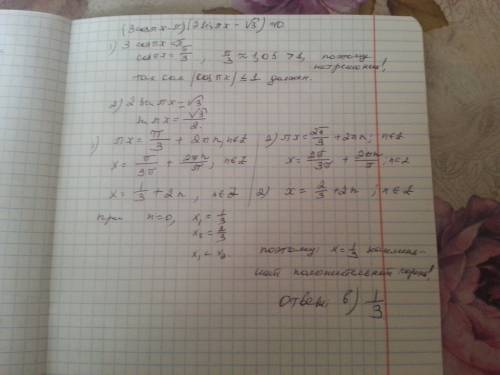 (3cosπx-π)(2sinπx-√3)=0
1) 3cosπx=π
cosπx=π/3, π/3≈1,05>1, поэтому
нет решений!
так как |cosπx|≤1 должен.
2) 2sinπx=√3
sinπx=√3/2.
1) πx=π/3+2πn; n∈Z 2) πx=2π/3+2πn; n∈Z
x=π/3π+2πn/π; n∈Z x=2π/3π+2πn/π; n∈Z
x=1/3+2n, n∈Z 2) x=2/3+2n; n∈Z
при n=0, x₁=1/3
x₂=2/3
x₁<x₂
поэтому: x=1/3 наимень-
ший положительный корень!
Ответ: в) 1/3